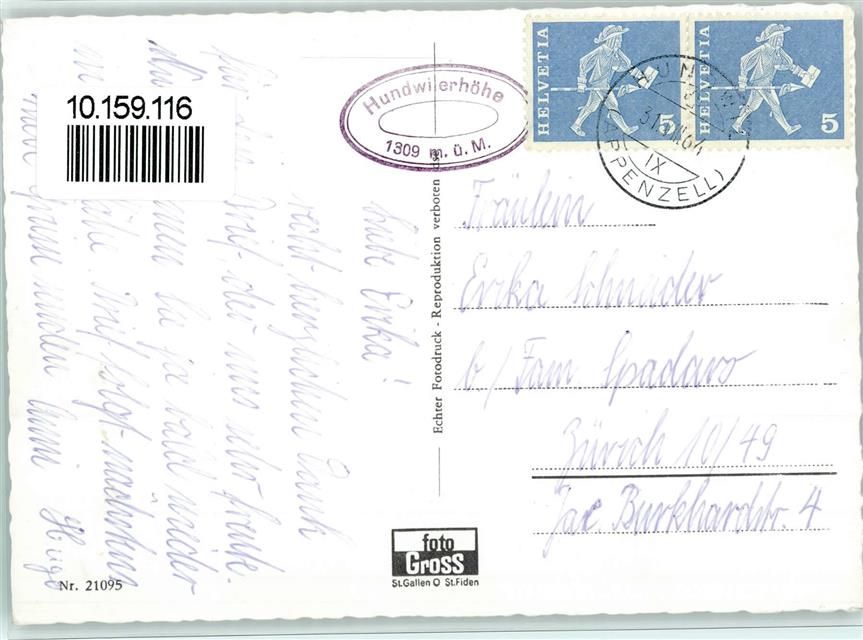 10.159.116
Hundwilerhöhe
1309 m. ü. M.
HELVETIA
5
HELVETIA
5
HUNDWIL
31. VII. 64
IX
(APPENZELL)
Liebe Erika!
recht herzlichen Dank
für den Brief, der uns sehr freute.
Du ja bald wieder
Brief folgt nächstens
Hugo
Echter Fotodruck - Reproduktion verboten
Fräulein
Erika Schneider
b/ Fam Spadaro
Zürich 10/49
Jac Burkhardstr. 4
foto
Gross
St.Gallen O St.Fiden
Nr. 21095